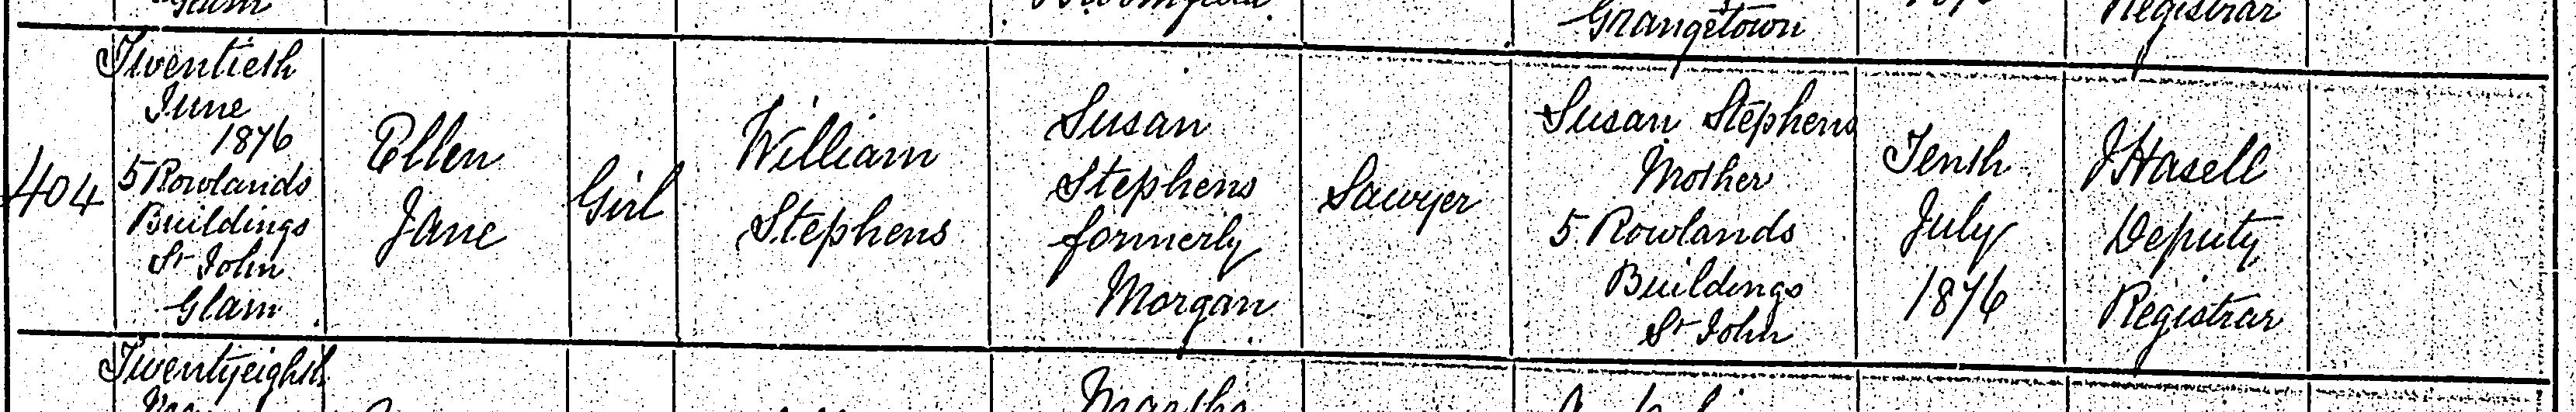 Grangetown
Registrar
404
Twentieth
June
1876
5 Rowlands
Buildings
St John
Glam
Ellen
Jane
Girl
William
Stephens
Susan
Stephens
formerly
Morgan
Sawyer
Susan Stephens
Mother
5 Rowlands
Buildings
St John
Tenth
July
1876
J Hasell
Deputy
Registrar
Twentyeighth